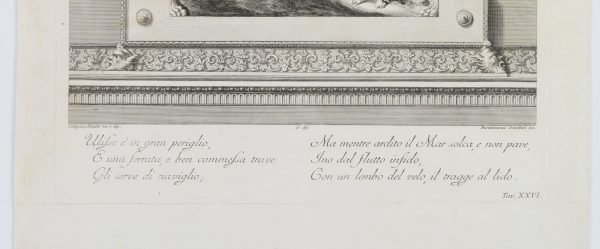 Pellegrino Tibaldi inv. e dip.
Bartolomeo Crivellari inc.
Ulisse è in gran periglio,
E una serrata, e ben commessa trave
Gli serve di naviglio,
Ma mentre ardito il Mar solca, e non pave,
Ino dal flutto infido,
Con un' lembo del velo, il tragge al lido.
Tav. XXVI.